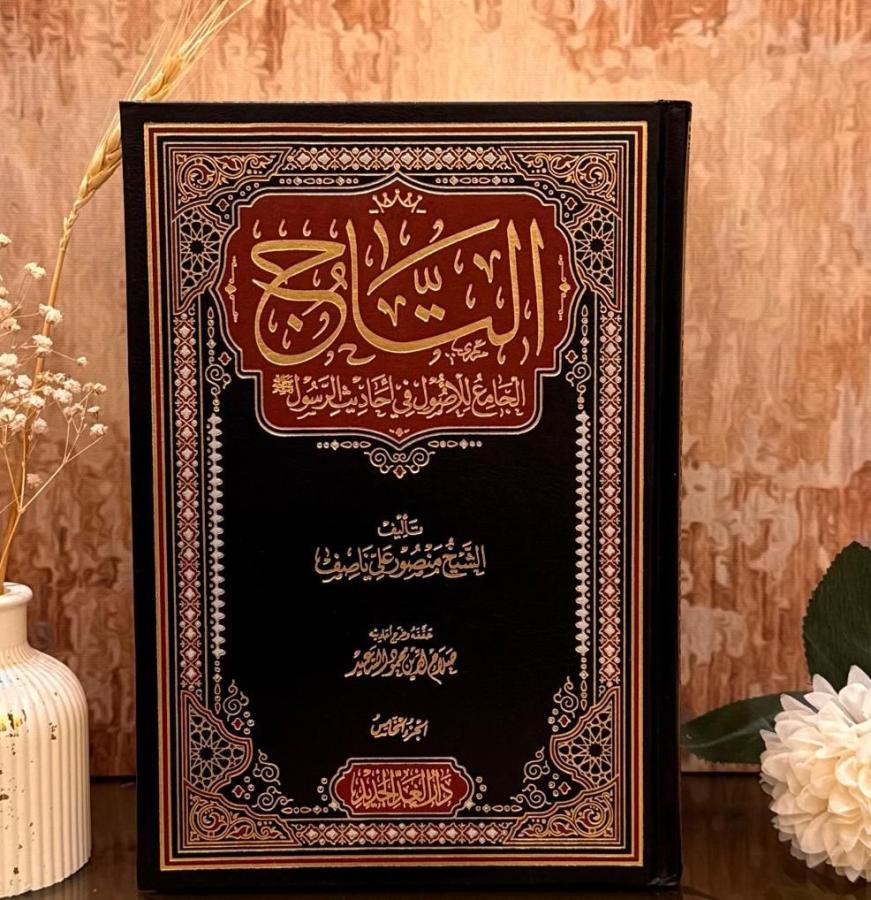 التَّاجُ
الجَامِعُ لِلأُصُولِ فِي أَحَادِيثِ الرَّسُولِ ﷺ
تَأليف
الشَّيْخُ مَنْصُورْ عَلِي نَاصِفْ
حَقَّقَهُ وَخَرَّجَ أَحَادِيثَهُ
صَلَاحُ الدِّين محمُود السَّعِيد
الجُزءُ الخَامِسُ
دَارُ الغَدِ الجَدِيد